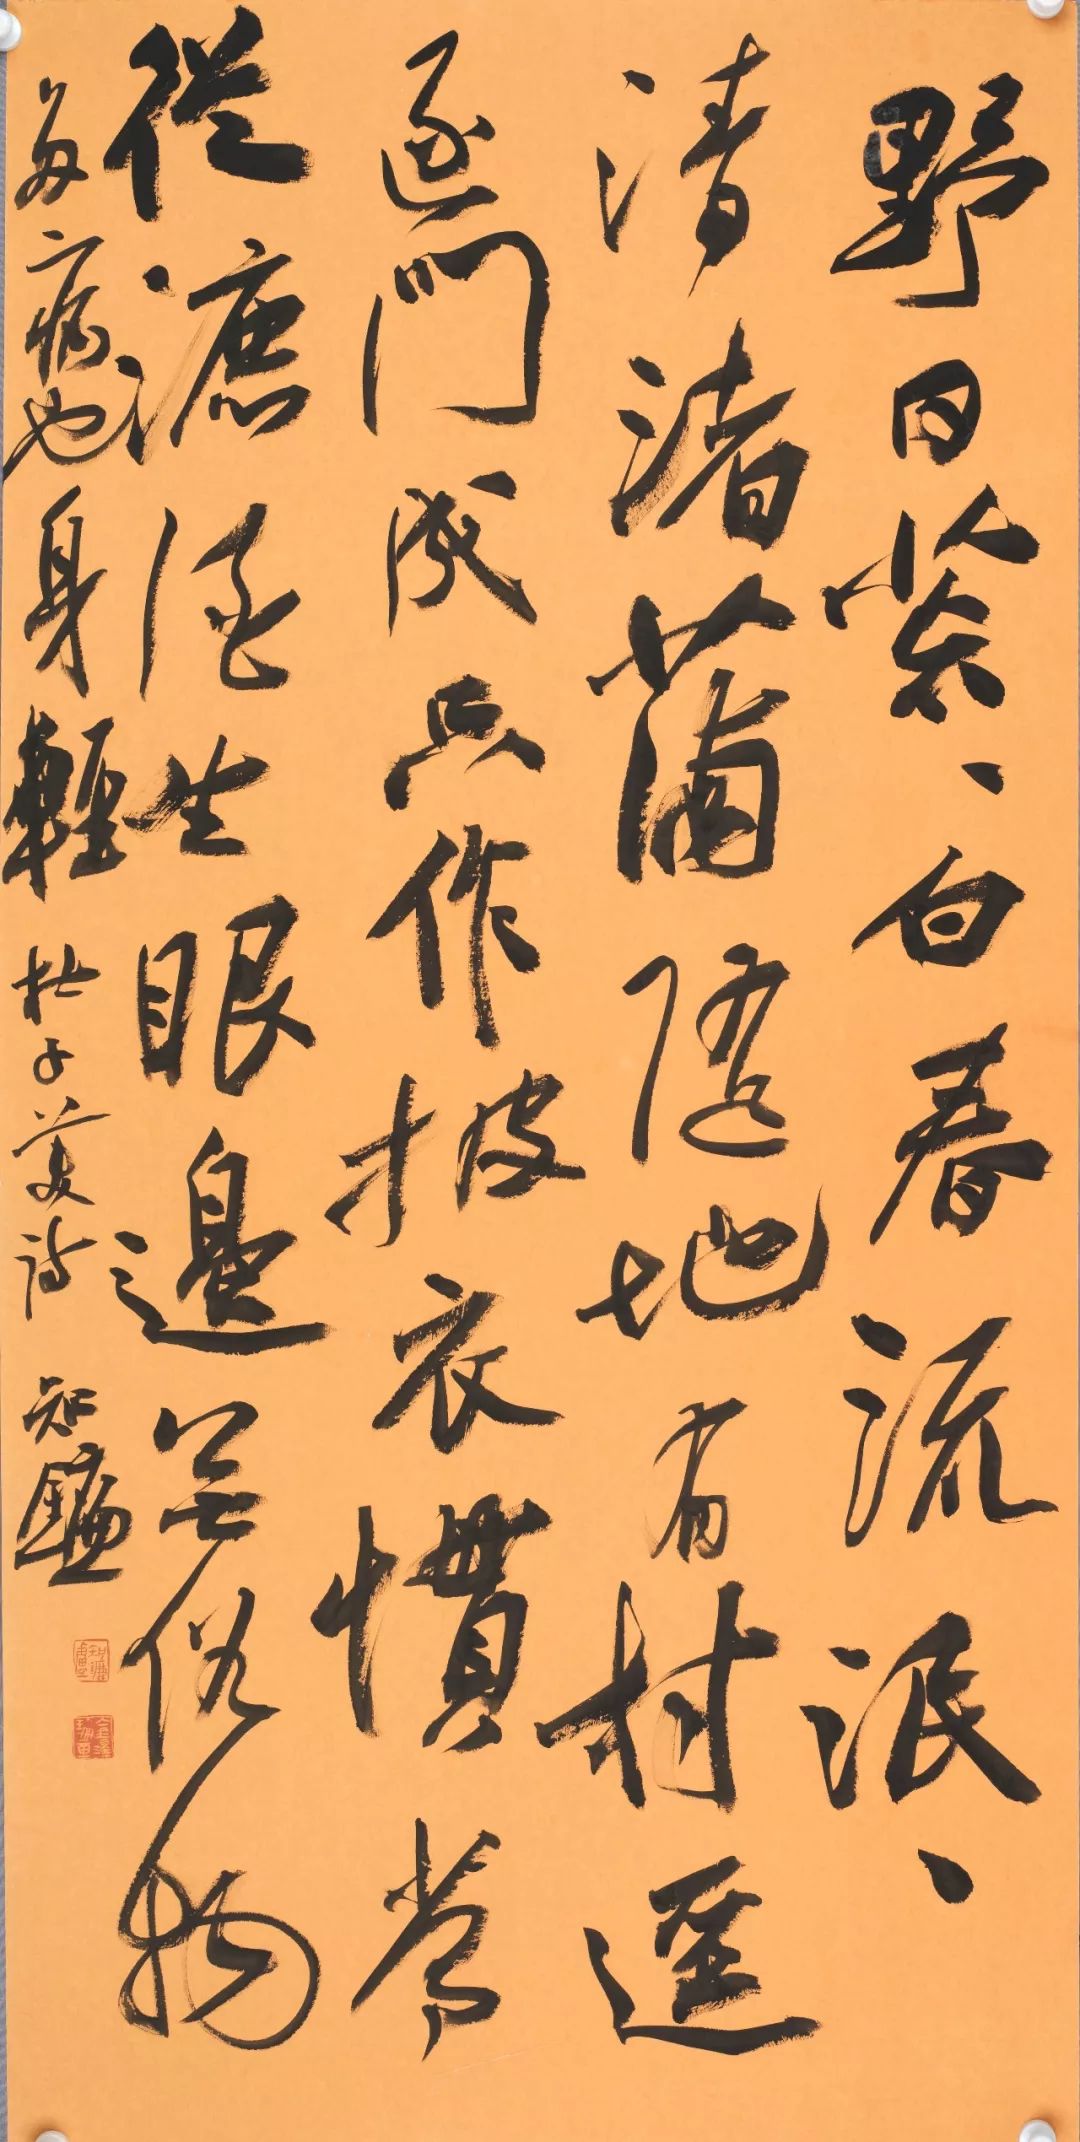 野日荒、白春流泯、
清渚蒲隨地有村逕
逐門成只作披衣慣常
從漉酒生眼邊無俗物
多病也身輕 杜子美詩 知